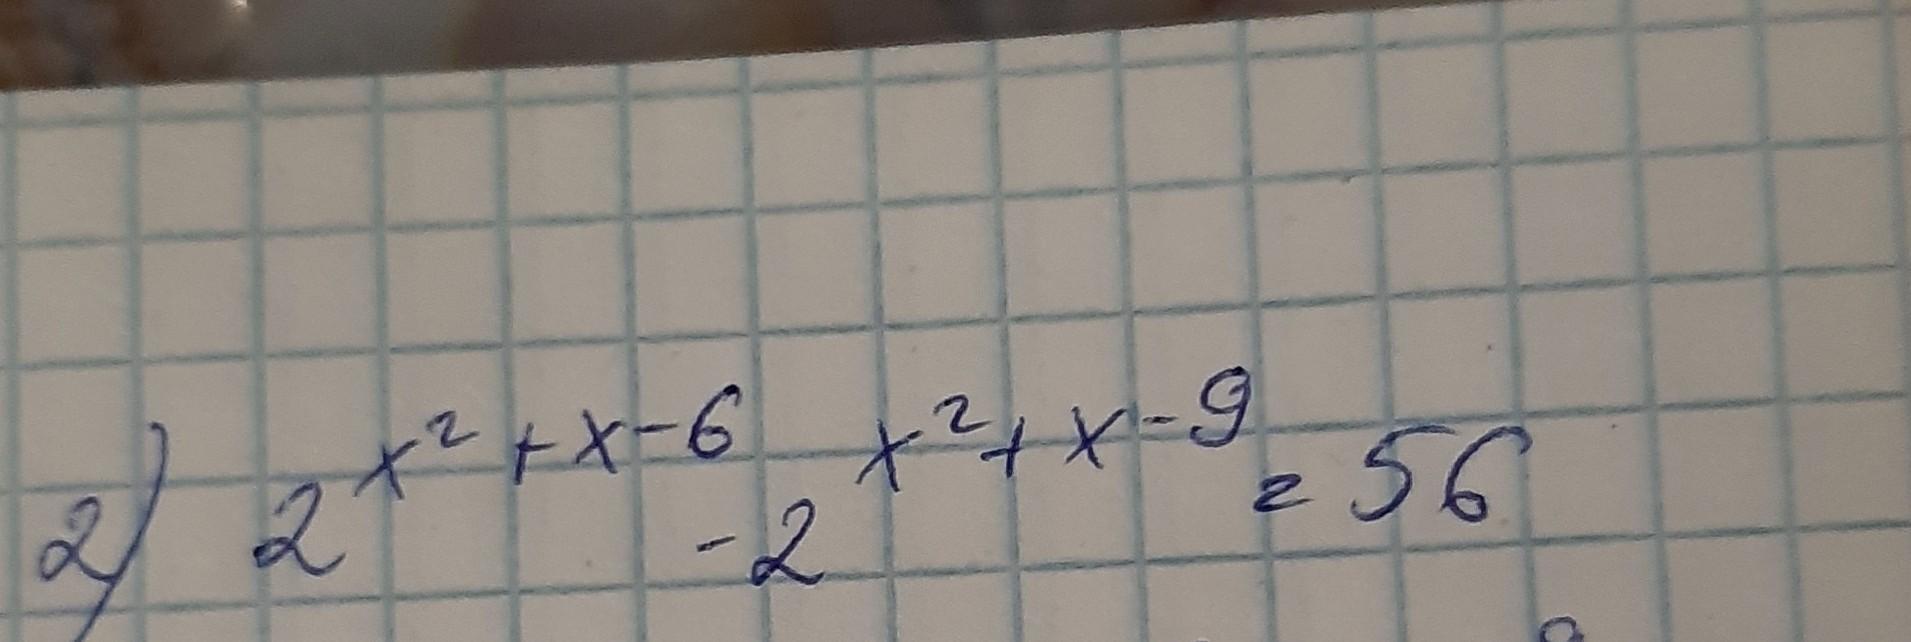 2) 2^{x^2+x-6} -2^{x^2+x-9} = 56